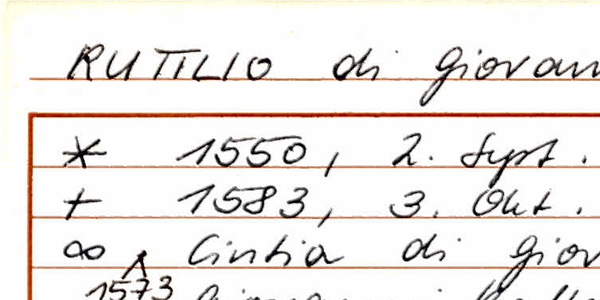 RUTILIO di Giovan
* 1550, 2. Sept.
+ 1583, 3. Okt.
∞ Cintia di Giov
1573